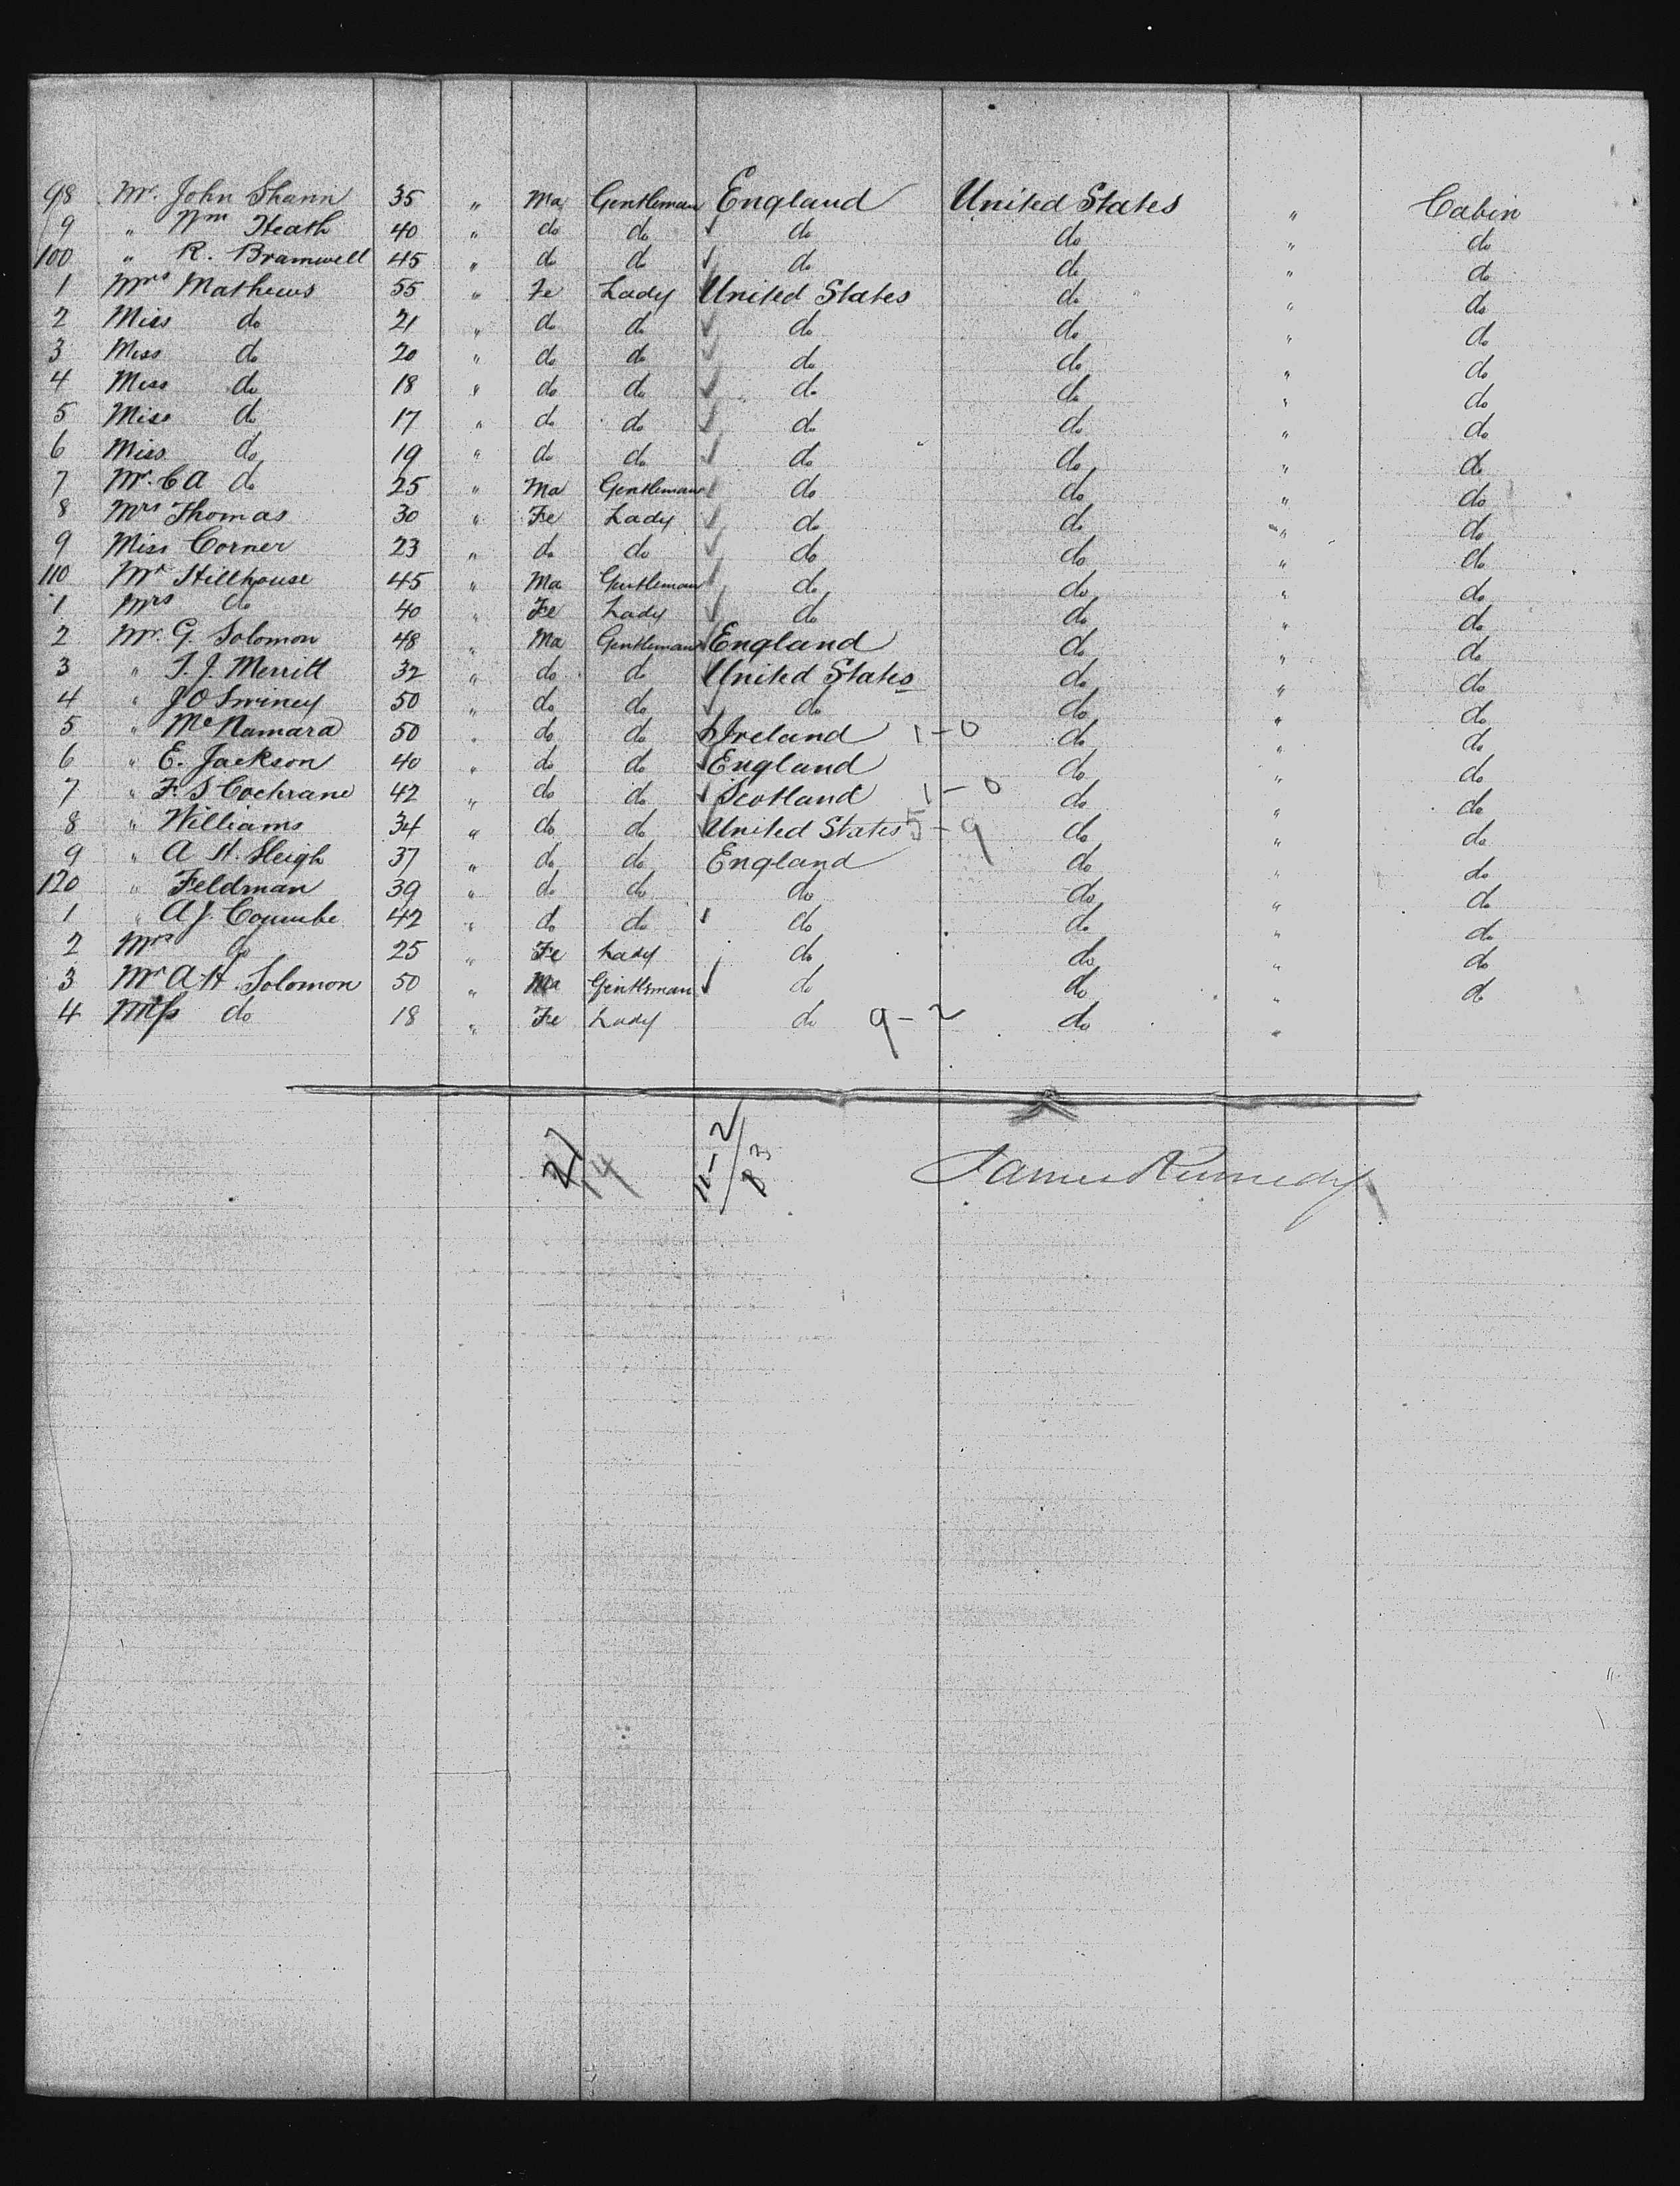 98 Mr. John Shann 35 " Ma Gentleman England United States " Cabin
9 " Wm Heath 40 " do do do do " do
100 " R. Bramwell 45 " do do do do " do
1 Mrs Mathews 55 " Fe Lady United States do " do
2 Miss do 21 " do do do do " do
3 Miss do 20 " do do do do " do
4 Miss do 18 " do do do do " do
5 Miss do 17 " do do do do " do
6 Miss do 19 " do do do do " do
7 Mr. C A do 25 " Ma Gentleman do do " do
8 Mrs Thomas 30 " Fe Lady do do " do
9 Miss Corner 23 " do do do do " do
110 Mr Hillhouse 45 " Ma Gentleman do do " do
1 Mrs do 40 " Fe Lady do do " do
2 Mr. G. Solomon 48 " Ma Gentleman England do " do
3 " T. J. Merritt 32 " do do United States do " do
4 " J O Swiney 50 " do do do do " do
5 " McNamara 50 " do do Ireland 1-0 do " do
6 " E. Jackson 40 " do do England do " do
7 " F. S Cochrane 42 " do do Scotland 1-0 do " do
8 " Williams 34 " do do United States 5-9 do " do
9 " A H. Sleigh 37 " do do England do " do
120 " Feldman 39 " do do do do " do
1 " A J. Coyumbe 42 " do do do do " do
2 Mrs do 25 " Fe Lady do do " do
3 Mr A H. Solomon 50 " Ma Gentleman do do " do
4 Miss do 18 " Fe Lady do 9-2 do "
11-2
83
James Kennedy